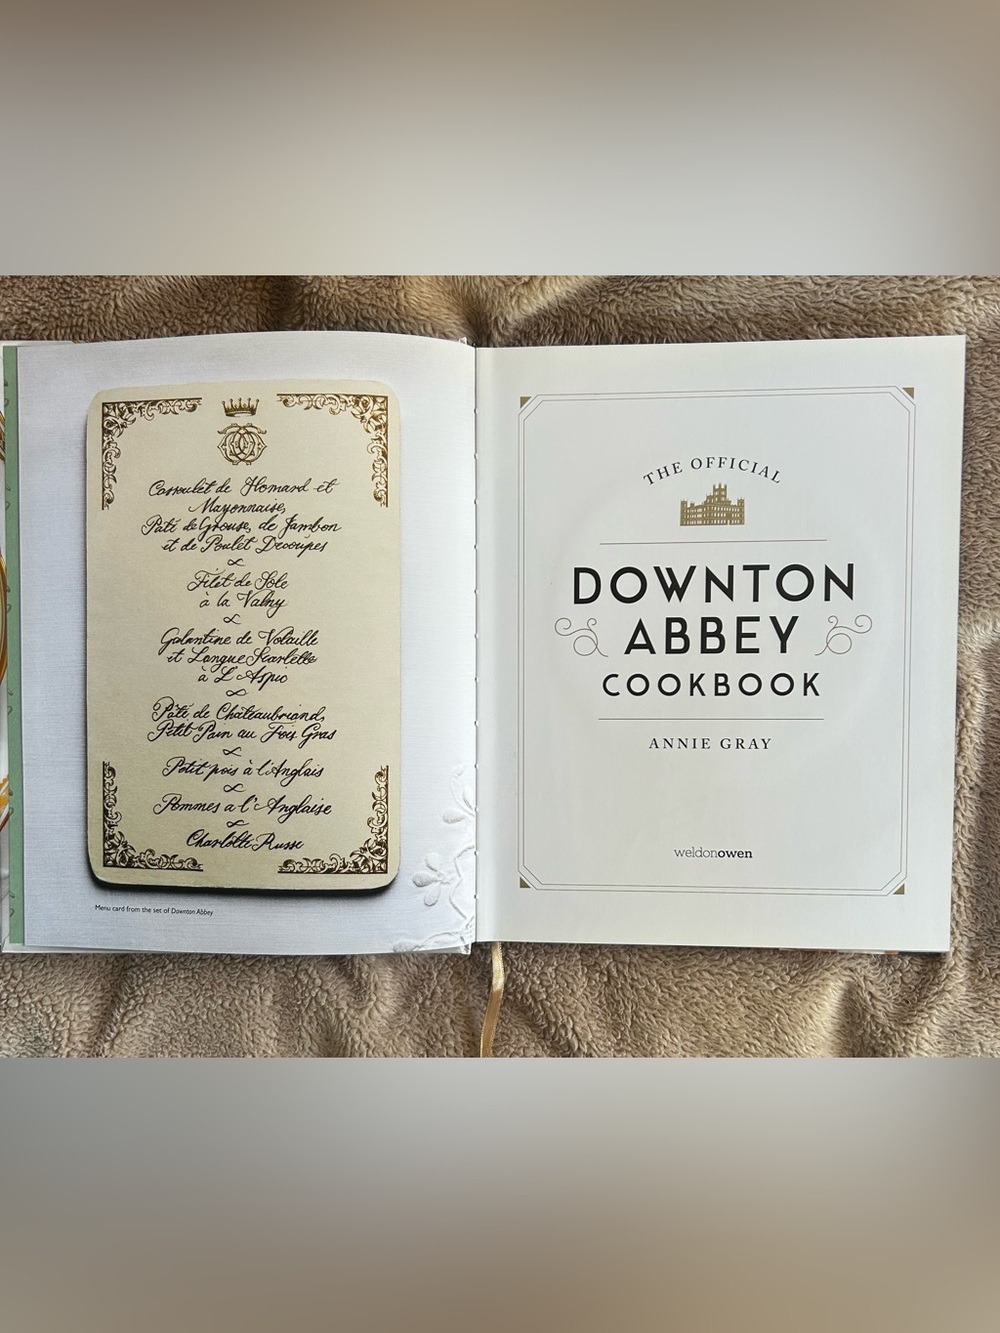 Cassoulet de Homard et
Mayonnaise,
Paté de Grouse, de Jambon
et de Poulet Decoupes
Filet de Sole
à la Valny
Galantine de Volaille
et Langue Scarlette
à L'Aspic
Pâté de Chateaubriand,
Petit Pain au Fois Gras
Petit pois à l'Anglais
Pommes a l'Anglaise
Charlotte Russe
Menu card from the set of Downton Abbey
THE OFFICIAL
DOWNTON
ABBEY
COOKBOOK
ANNIE GRAY
weldonowen